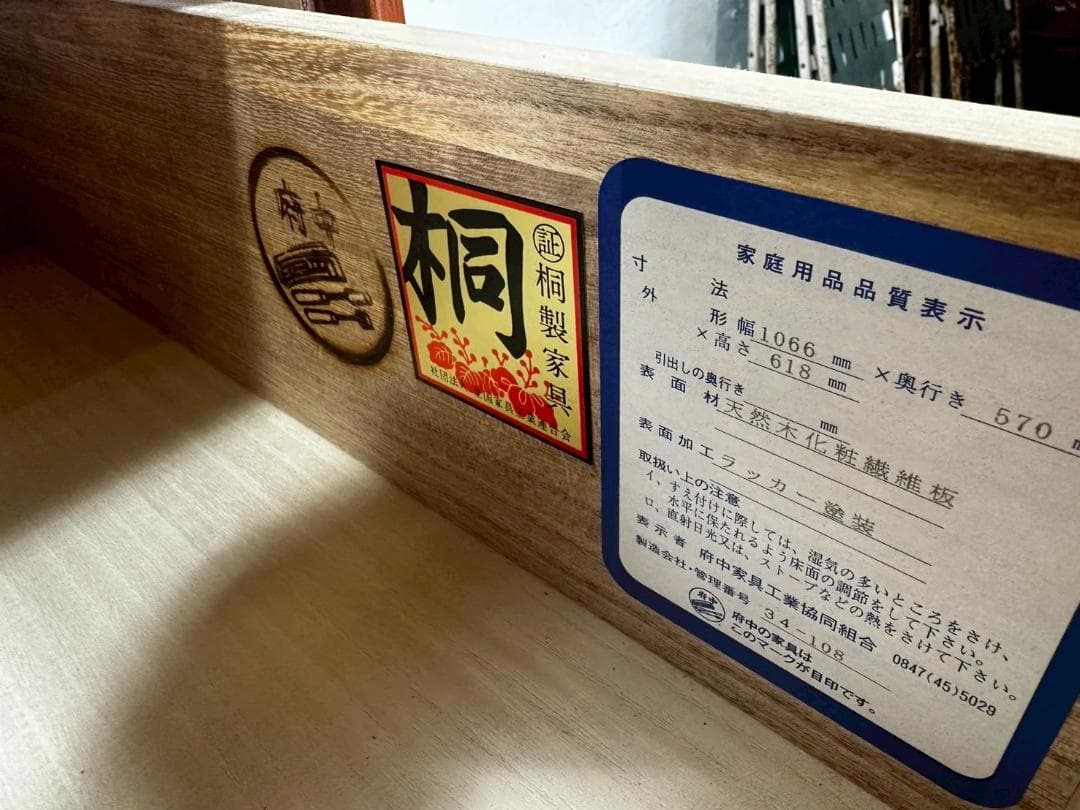 府中
桐
証
桐製家具
家庭用品品質表示
寸法
外形 幅1066mm
×高さ618mm ×奥行き570mm
引出しの奥行き mm
表面材 天然木化粧繊維板
表面加工 ラッカー塗装
取扱い上の注意
イ、すえ付けに際しては、湿気の多いところをさけ、
水平に保たれるよう床面の調節をして下さい。
ロ、直射日光又は、ストーブなどの熱をさけて下さい。
表示者 府中家具工業協同組合 0847(45)5029
製造会社・管理番号 34-108
府中
府中の家具は
このマークが目印です。